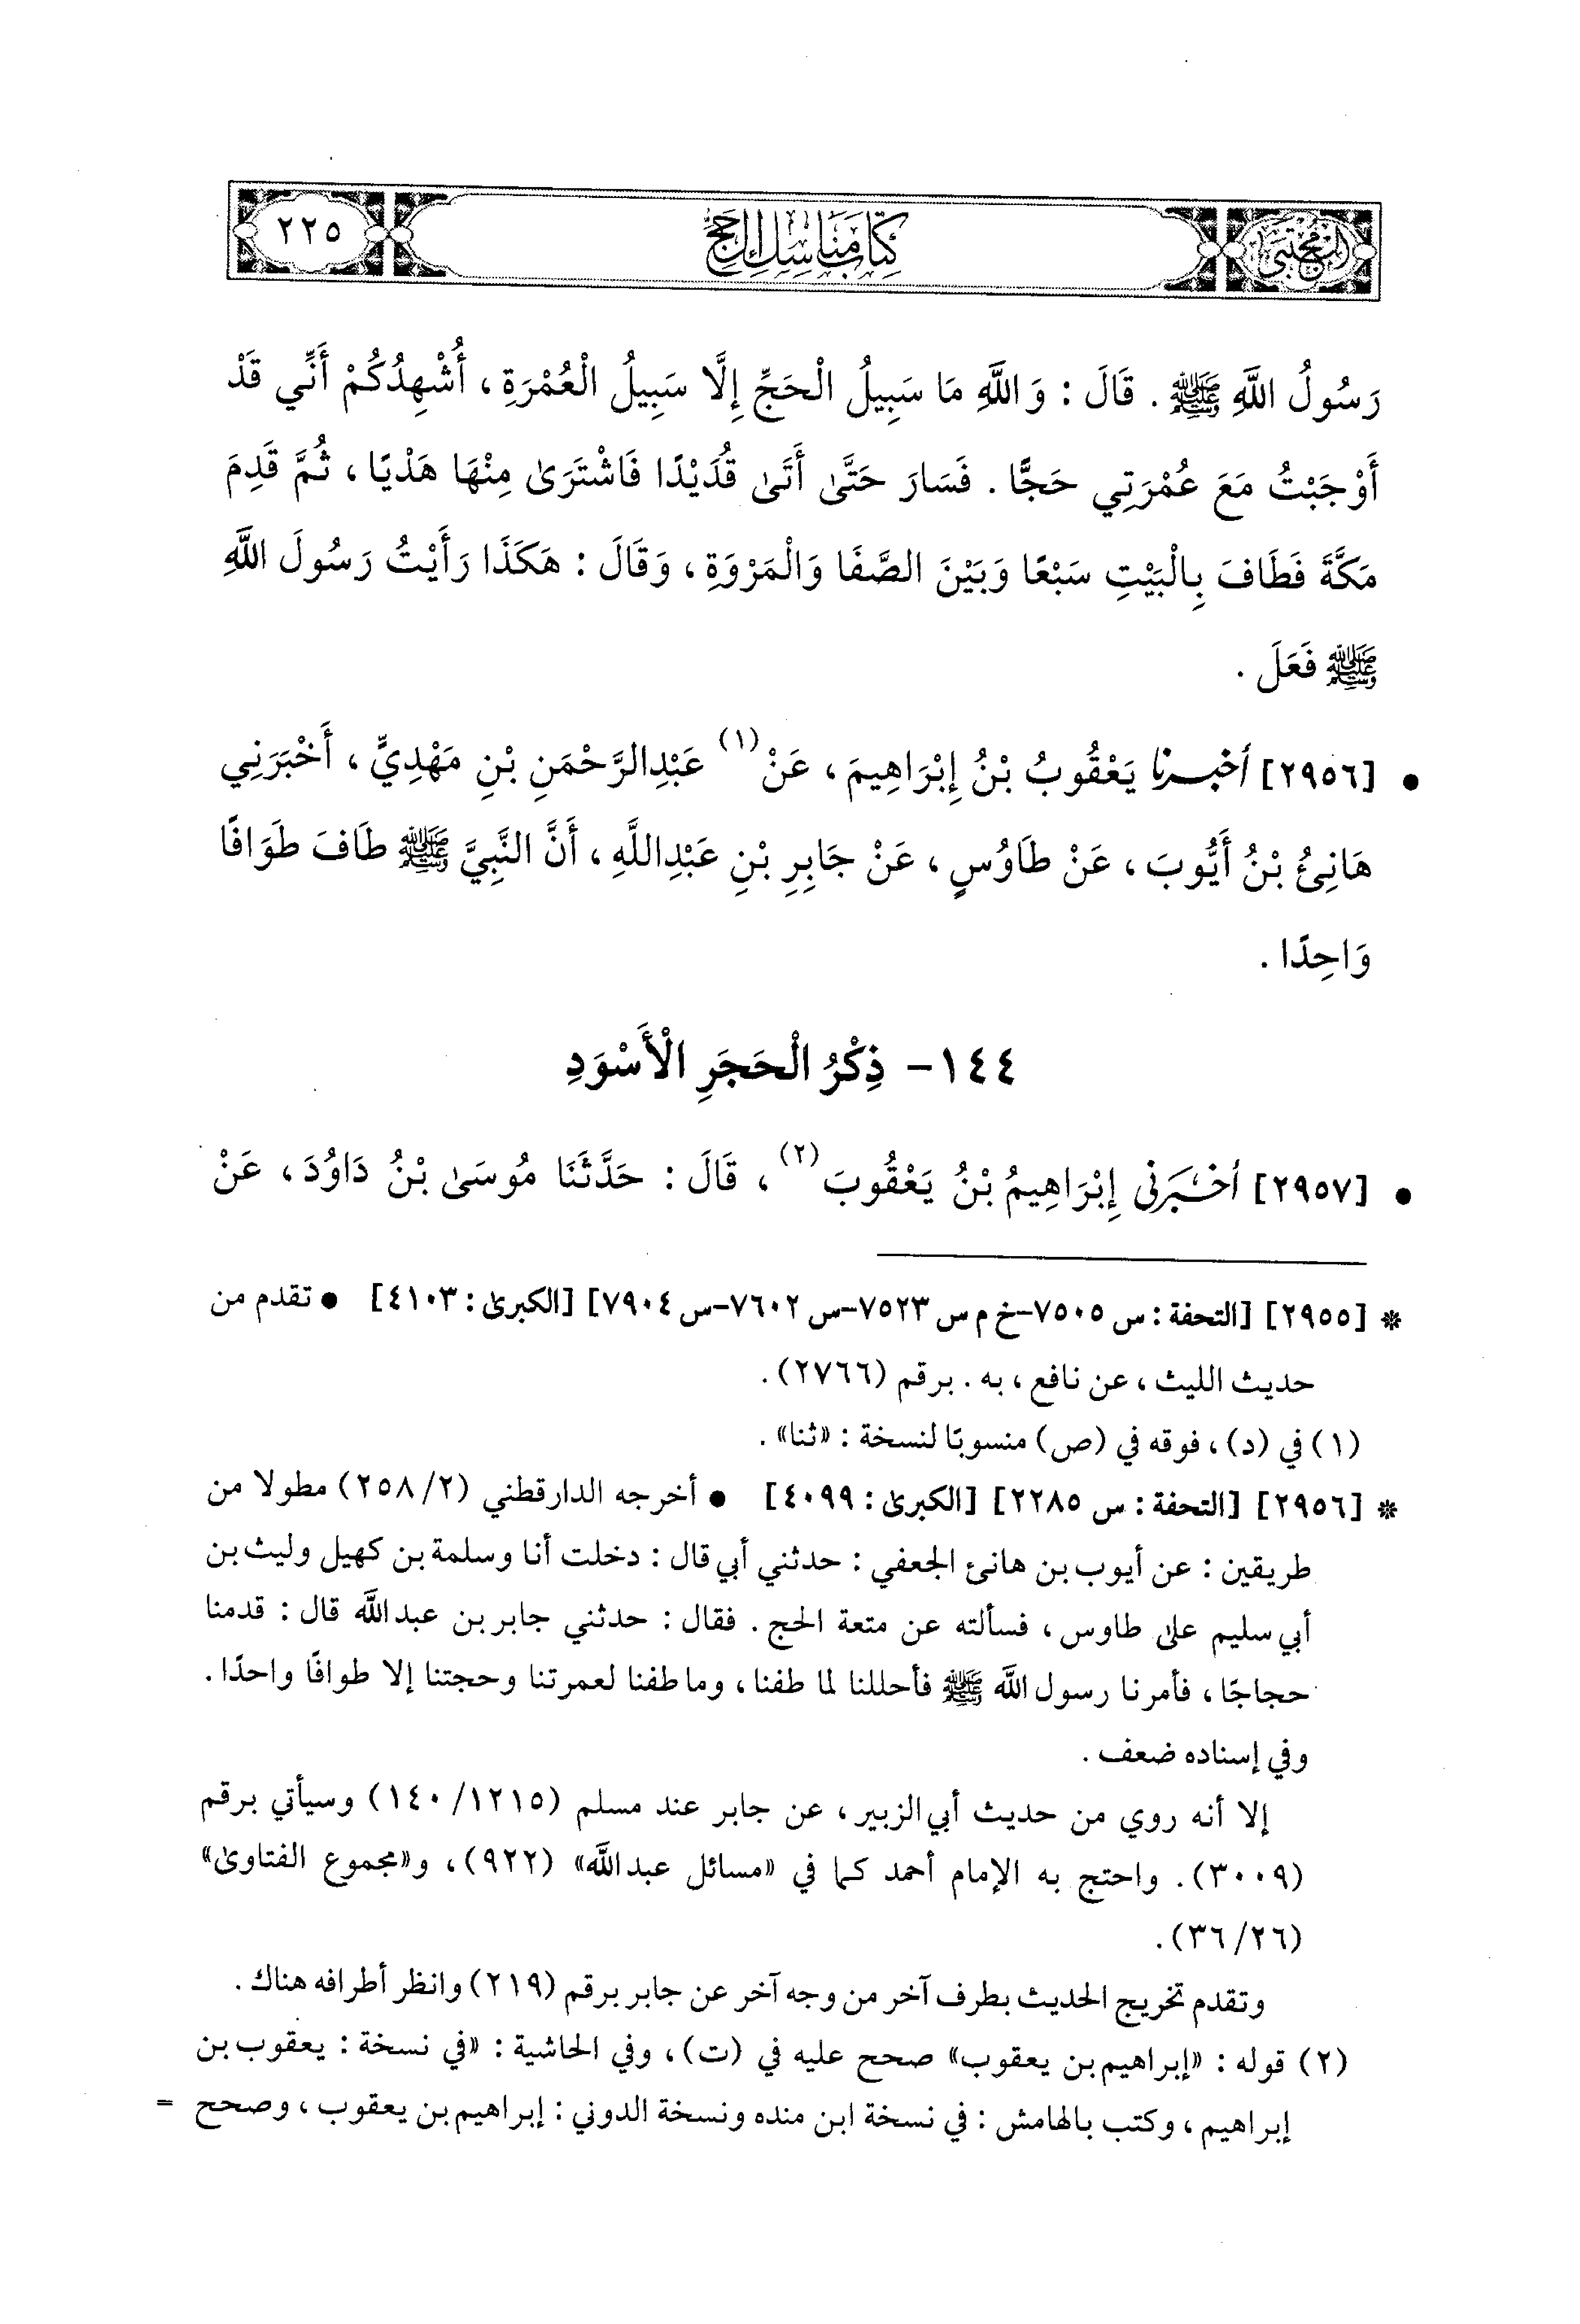 المجتبى كتاب مناسك الحج ٢٢٥
رَسُولُ اللَّهِ ﷺ . قَالَ : وَاللَّهِ مَا سَبِيلُ الْحَجِّ إِلَّا سَبِيلُ الْعُمْرَةِ ، أُشْهِدُكُمْ أَنِّي قَدْ
أَوْجَبْتُ مَعَ عُمْرَتِي حَجًّا . فَسَارَ حَتَّىٰ أَتَىٰ قُدَيْدًا فَاشْتَرَىٰ مِنْهَا هَدْيًا ، ثُمَّ قَدِمَ
مَكَّةَ فَطَافَ بِالْبَيْتِ سَبْعًا وَبَيْنَ الصَّفَا وَالْمَرْوَةِ ، وَقَالَ : هَكَذَا رَأَيْتُ رَسُولَ اللَّهِ
ﷺ فَعَلَ .
• [٢٩٥٦] أخبرنا يَعْقُوبُ بْنُ إِبْرَاهِيمَ ، عَنْ (١) عَبْدِالرَّحْمَنِ بْنِ مَهْدِيٍّ ، أَخْبَرَنِي
هَانِئُ بْنُ أَيُّوبَ ، عَنْ طَاوُسٍ ، عَنْ جَابِرِ بْنِ عَبْدِاللَّهِ ، أَنَّ النَّبِيَّ ﷺ طَافَ طَوَافًا
وَاحِدًا .
١٤٤ - ذِكْرُ الْحَجَرِ الْأَسْوَدِ
• [٢٩٥٧] أخبرني إِبْرَاهِيمُ بْنُ يَعْقُوبَ (٢) ، قَالَ : حَدَّثَنَا مُوسَىٰ بْنُ دَاوُدَ ، عَنْ
* [٢٩٥٥] [التحفة : س ٧٥٠٥-خ م س ٧٥٢٣-س ٧٦٠٢-س ٧٩٠٤] [الكبرىٰ : ٤١٠٣] • تقدم من
حديث الليث ، عن نافع ، به . برقم (٢٧٦٦) .
(١) في (د) ، فوقه في (ص) منسوبًا لنسخة : «ثنا» .
* [٢٩٥٦] [التحفة : س ٢٢٨٥] [الكبرىٰ : ٤٠٩٩] • أخرجه الدارقطني (٢/ ٢٥٨) مطولا من
طريقين : عن أيوب بن هانئ الجعفي : حدثني أبي قال : دخلت أنا وسلمة بن كهيل وليث بن
أبي سليم علىٰ طاوس ، فسألته عن متعة الحج . فقال : حدثني جابر بن عبد اللَّه قال : قدمنا
حجاجًا ، فأمرنا رسول اللَّه ﷺ فأحللنا لما طفنا ، وما طفنا لعمرتنا وحجتنا إلا طوافًا واحدًا .
وفي إسناده ضعف .
إلا أنه روي من حديث أبي الزبير ، عن جابر عند مسلم (١٢١٥/ ١٤٠) وسيأتي برقم
(٣٠٠٩) . واحتج به الإمام أحمد كما في «مسائل عبد اللَّه» (٩٢٢) ، و«مجموع الفتاوىٰ»
(٢٦/ ٣٦) .
وتقدم تخريج الحديث بطرف آخر من وجه آخر عن جابر برقم (٢١٩) وانظر أطرافه هناك .
(٢) قوله : «إبراهيم بن يعقوب» صحح عليه في (ت) ، وفي الحاشية : «في نسخة : يعقوب بن
إبراهيم ، وكتب بالهامش : في نسخة ابن منده ونسخة الدوني : إبراهيم بن يعقوب ، وصحح =